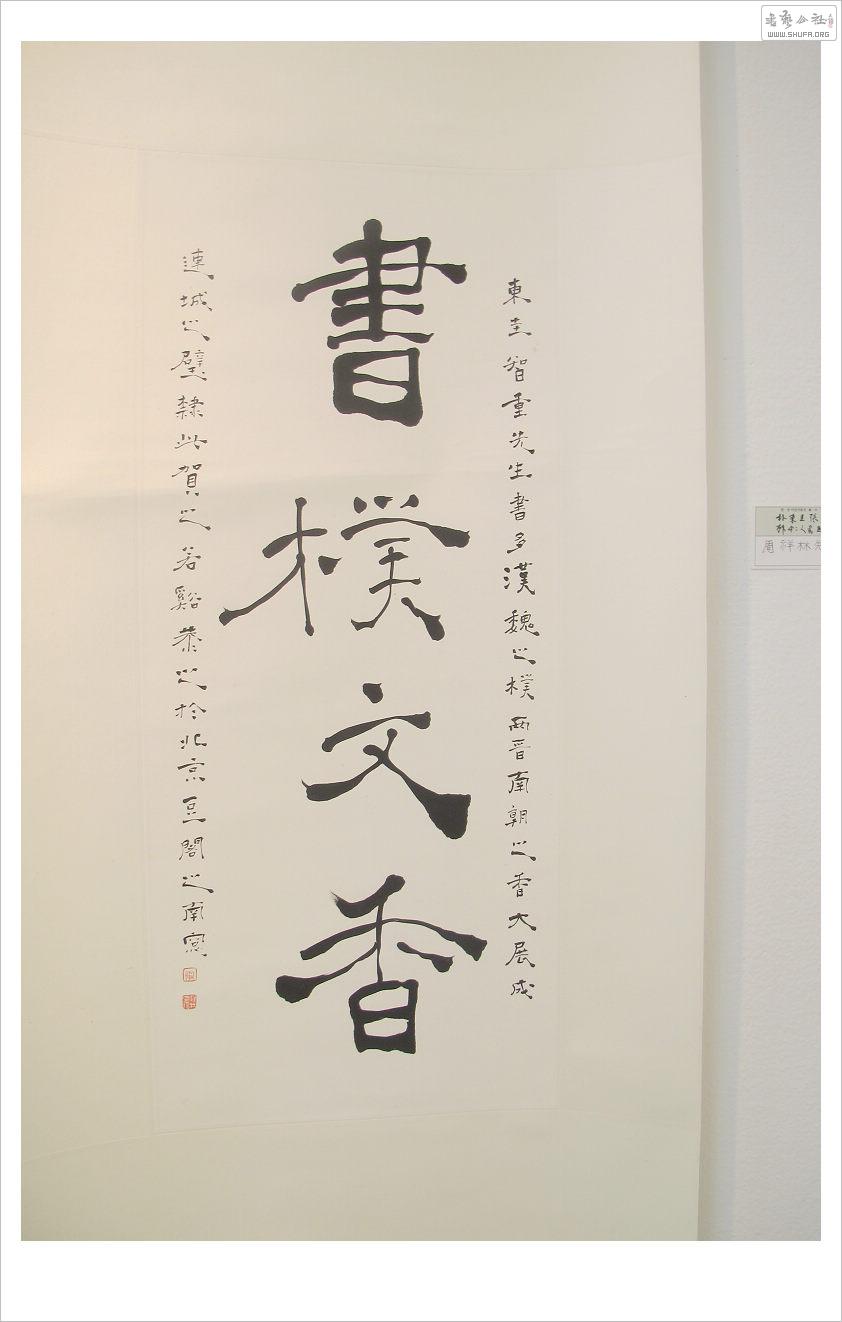 書法公社
WWW.SHUFA.ORG
東圭智重先生書多漢魏之樸兩晉南朝之香大展成
書樸文香
連城之璧隸此賀之若谿恭之於北京豆閣之南窗